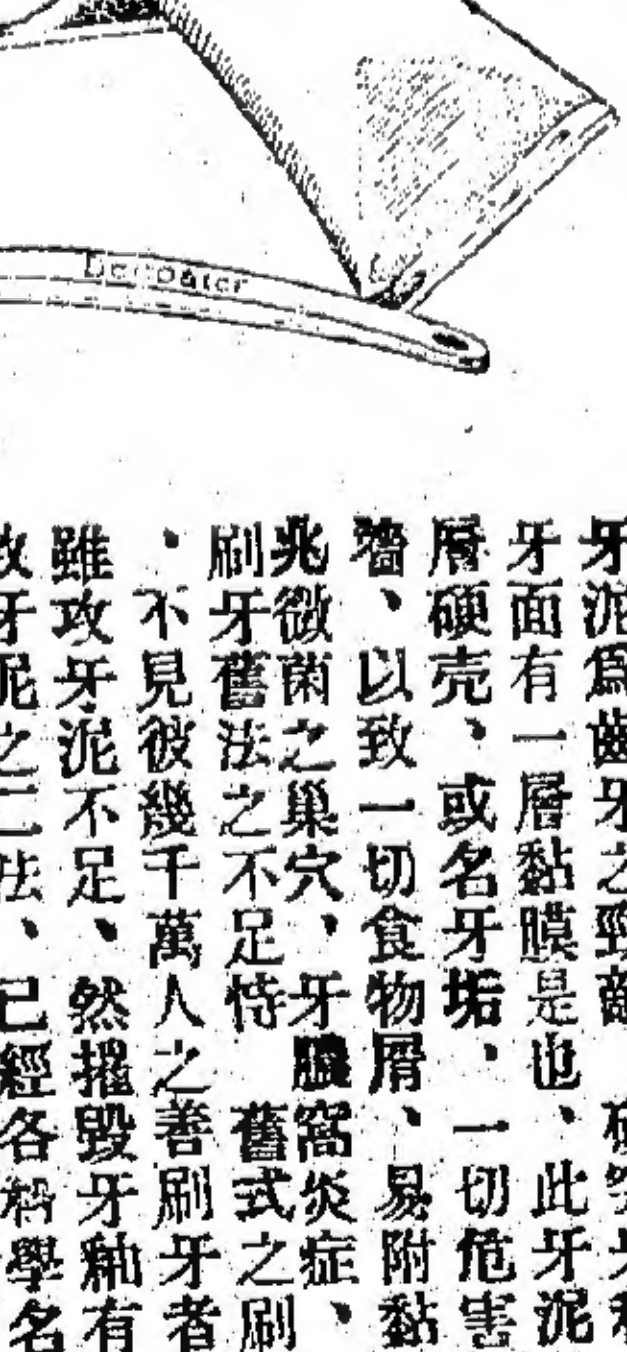 牙泥爲齒牙之勁敵
牙面有一層黏膜是也、此牙泥
層硬壳、或名牙垢、一切危害
墻、以致一切食物屑、易附黏
兆微菌之巢穴、牙 窩炎症、
刷牙舊法之不足恃 舊式之刷
、不見彼幾千萬人之善刷牙者
雖攻牙泥不足、然摧毀牙釉有
牙泥之二法、已經各科學名